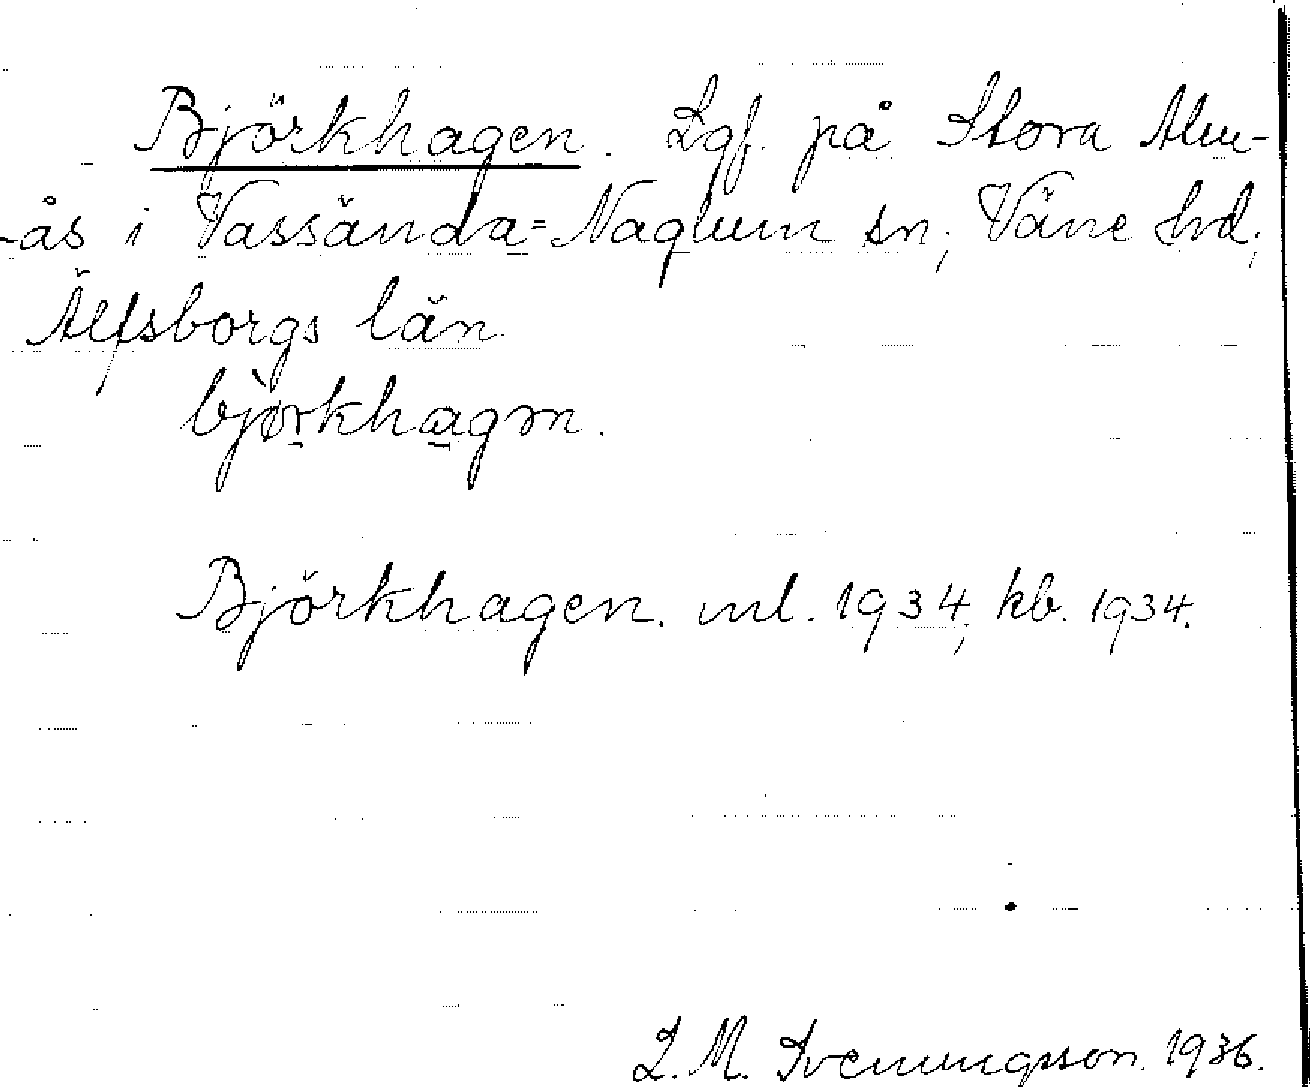 Björkhagen. Lgf. på Stora Alm-
-ås i Vassända=Naglum sn; Väne hd;
Älfsborgs län
bjò̱rkha̱gən.
Björkhagen. ml. 1934, kb. 1934.
L. M. Svenungsson. 1936.